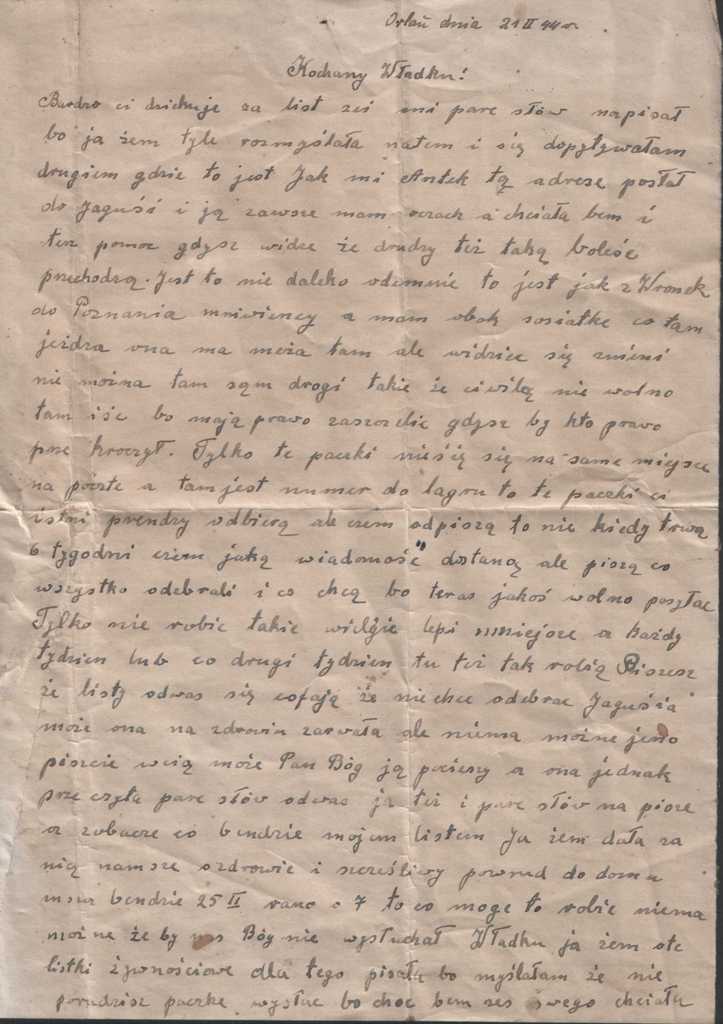 Orlau dnia 21 II 44 r.
Kochany Władku!
Bardzo ci dziekuje za list żeś mi pare słów napisał
bo ja żem tyle rozmyślała natem i się dopytywałam
drugiem gdzie to jest Jak mi Antek tą adrese posłał
do Jaguśi i ją zawsze mam oczach a chciała bem i
tesz pomoz gdysz widze że drudzy też taką boleśc
przechodzą. Jest to nie daleko odemnie to jest jak z Wronek
do Poznania mniwiency a mam obok sosiatke co tam
jeżdza ona ma męża tam ale widziec się znimi
nie można tam sąm drogi takie że ciwilą nie wolno
tam iśc bo mają prawo zaszczelic gdysz by kto prawo
prze kroczył. Tylko te paczki nieśią się na same miejsce
na poczte a tam jest numer do lagru to te paczki ci
istni prendzy odbierą ale czem odpiszą to nie kiedy trwa
6 tygodni czem jaką wiadomość dostaną ale piszą co
wszystko odebrali i co chcą bo teras jakoś wolno posyłac
Tylko nie robic takie wielgie lepi mniejsze a każdy
tydzien lub co drugi tydzien tu też tak robią Piszesz
że listy odwas się cofają że niechce odebrac Jaguśia
może ona na zdrowiu zarwała ale niema możne jeno
piszcie wcią może Pan Bóg ją pocieszy a ona jednak
prze czyta pare słów odwas ja też i pare słów na pisze
a zobacze co bendzie mojem listem Ja żem dała za
nią namsze ozdrowie i szcześliwy powrud do domu
msza bendzie 25 II rano o 7 to co moge to robie niema
możne że by nas Bóg nie wysłuchał Władku ja żem ote
listki żywnościowe dla tego pisała bo myślałam że nie
poradzisz paczke wysłac bo choc bem zes swego chciała